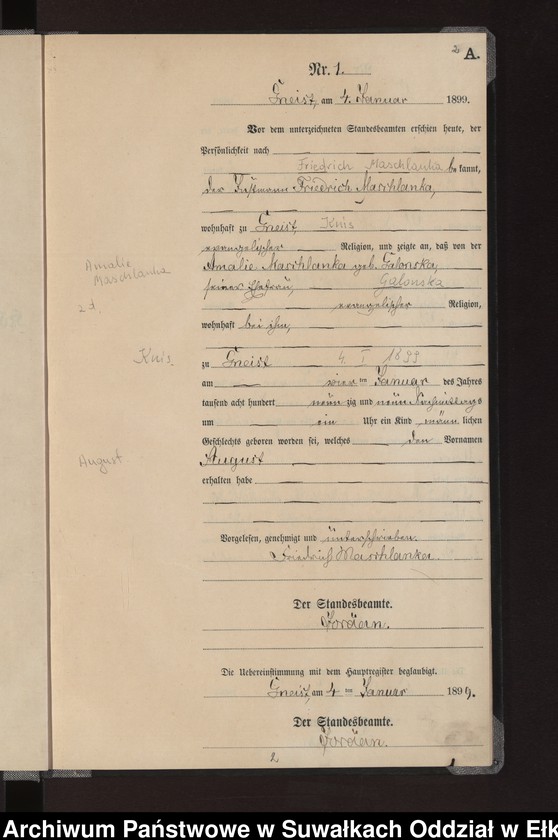 2 A.
Nr. 1.
Gneist, am 4. Januar 1899.
Vor dem unterzeichneten Standesbeamten erschien heute, der
Persönlichkeit nach
Friedrich Maschlanka bekannt,
der Friedrich Maschlanka,
wohnhaft zu Gneist, Knis
evangelischer Religion, und zeigte an, daß von der
Amalie Maschlanka geb. Galonska,
Amalie
Maschlanka
seiner Ehefrau, Galonska
evangelischer Religion,
2 d.
wohnhaft bei ihm,
Knis. zu Gneist 4. I 1899
am vier ten Januar des Jahres
tausend acht hundert neunzig und neun Nachmittags
um ein Uhr ein Kind männlichen
Geschlechts geboren worden sei, welches den Vornamen
August August
erhalten habe
Vorgelesen, genehmigt und unterschrieben.
Friedrich Maschlanka.
Der Standesbeamte.
Die Uebereinstimmung mit dem Hauptregister beglaubigt.
Gneist, am 4 ten Januar 1899.
Der Standesbeamte.
2
Archiwum Państwowe w Suwałkach Oddział w Ełk